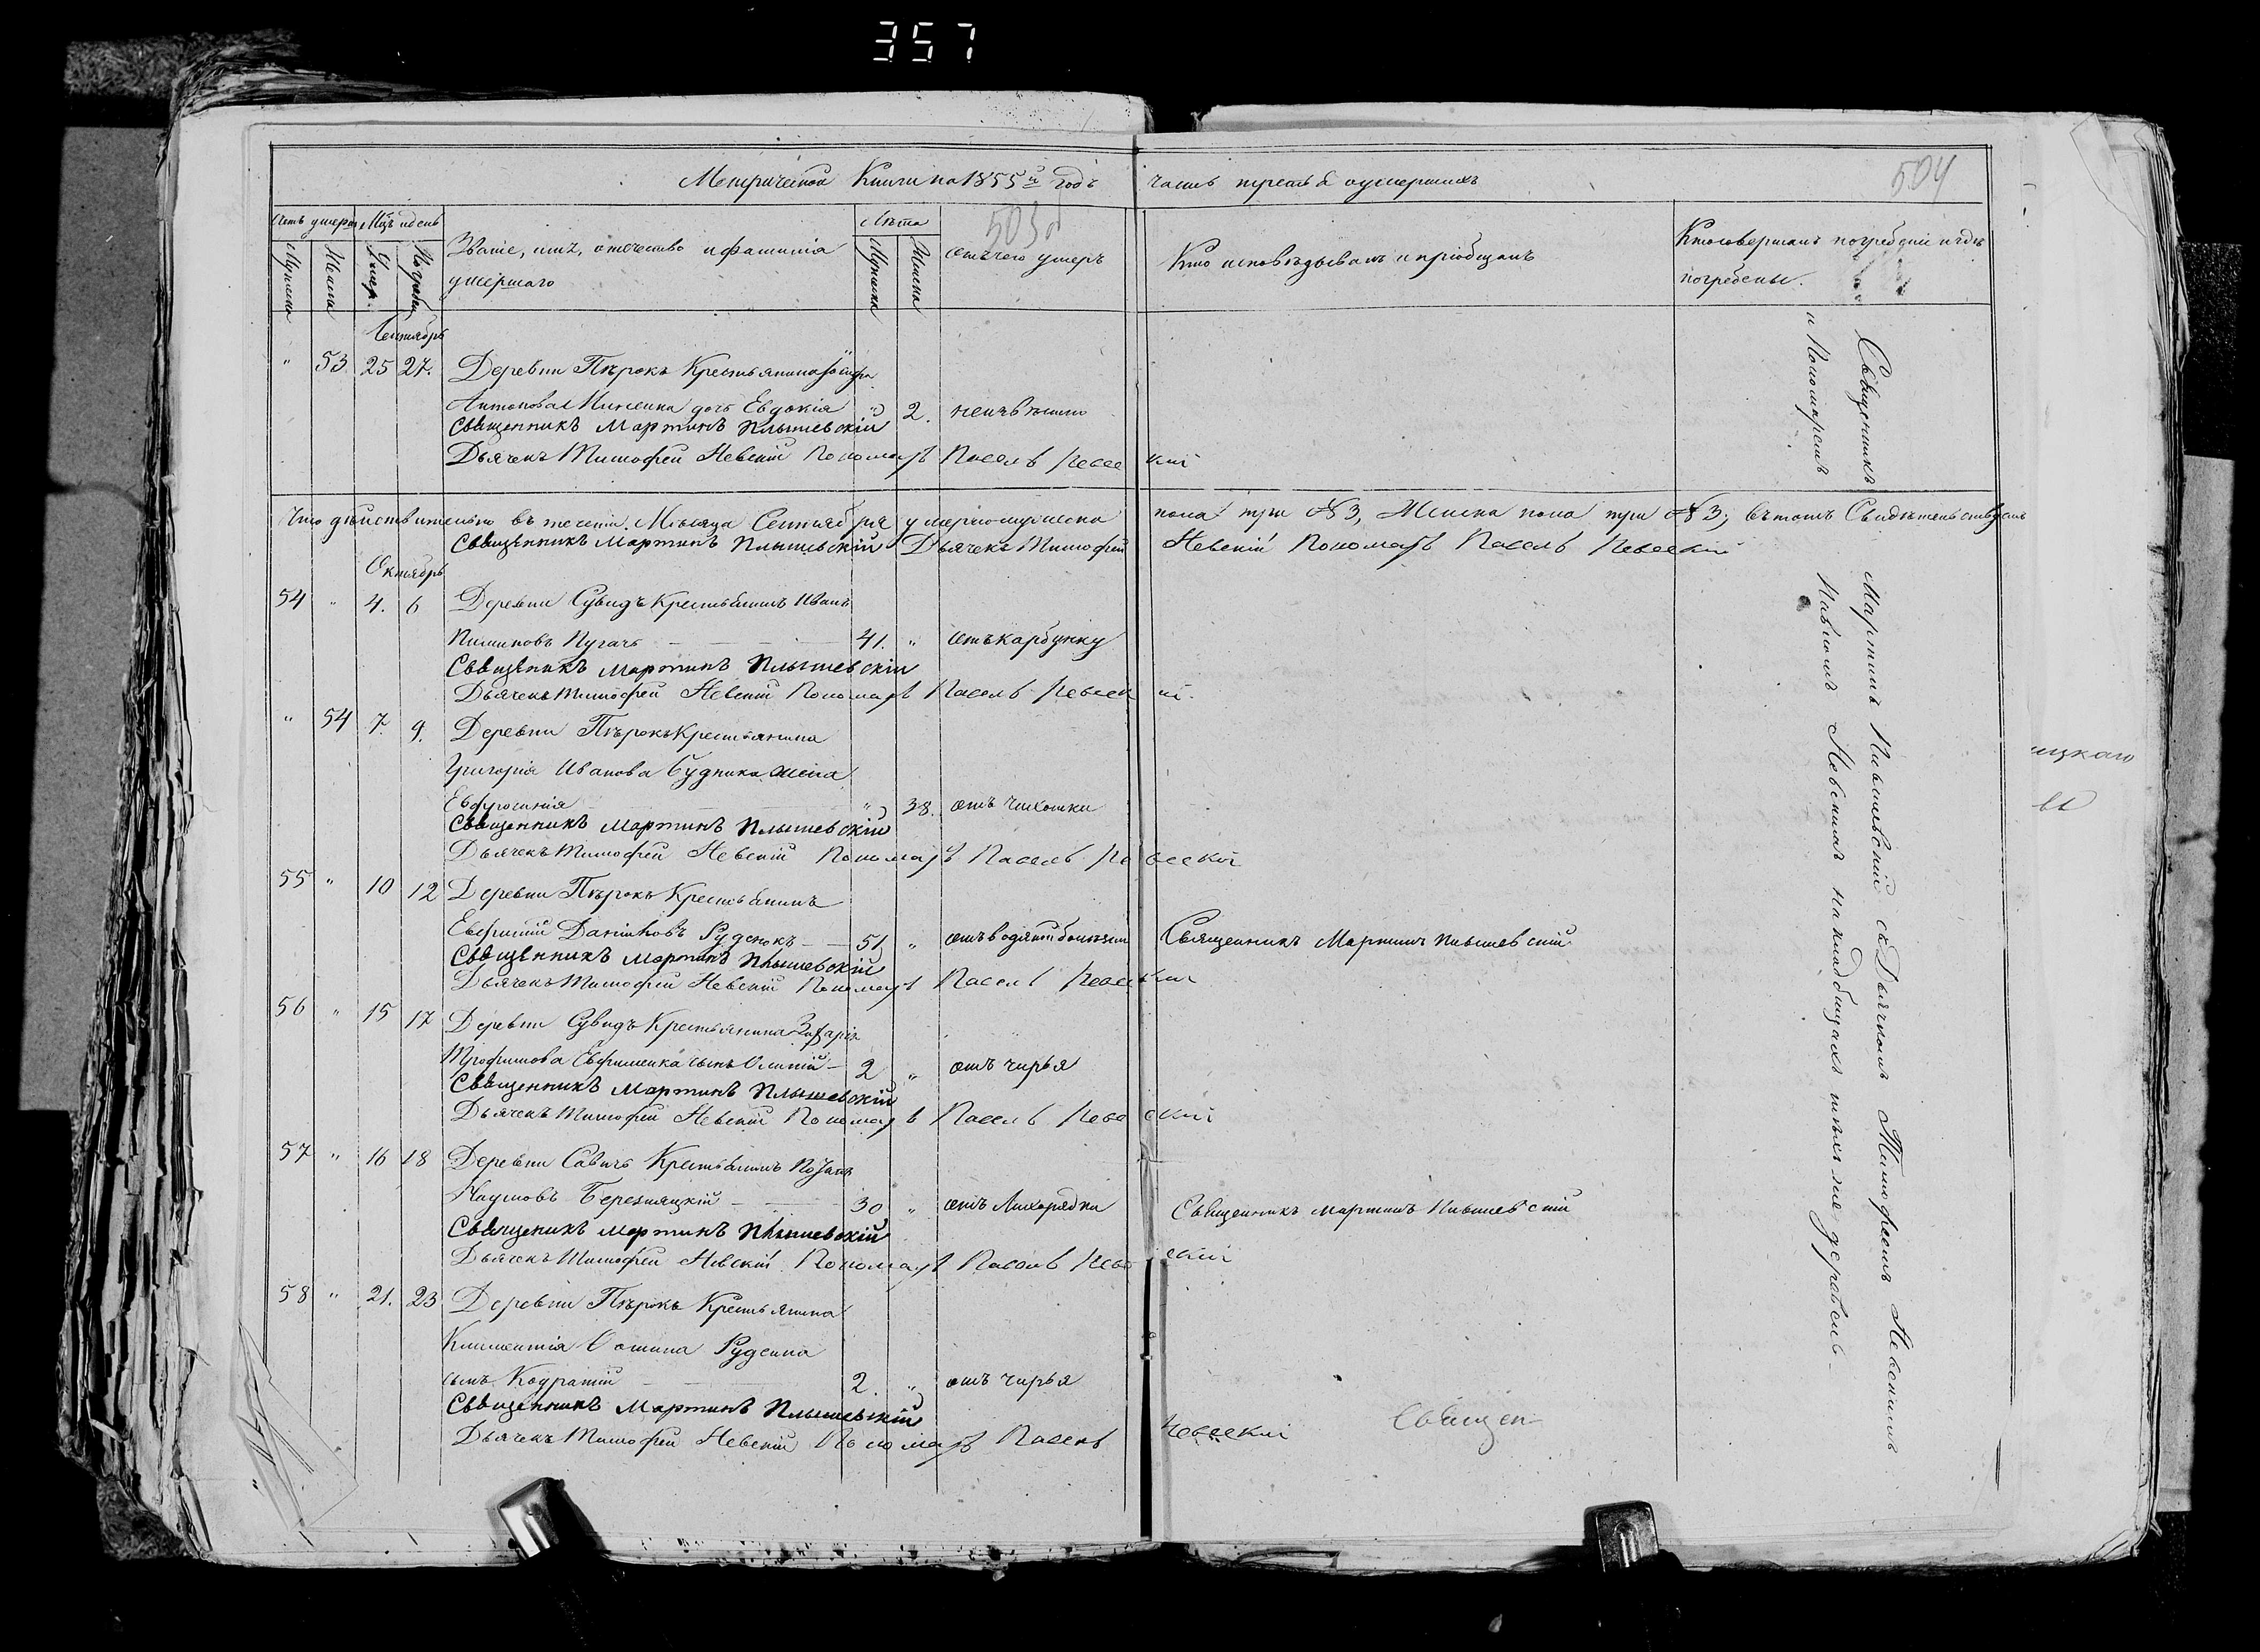 357
Метрической Книги на 1855й годъ часть третья о умершихъ
504
503 б
Счетъ умерш. Мѣс. и день
Звание, имя, отчество и фамилія умершаго
Лѣта
отъ чего умеръ
Кто исповѣдывалъ и пріобщалъ
Кто совершалъ погребеніе и гдѣ погребены.
Мужеска Женска Умер. Погребен. Мужска Женска
Сентябрь
" 53 25 27. Деревни Пѣрокъ Крестьянина
Антонова дочь Евдокія " 2. неизвѣстно
Священникъ Мартинъ Плышевскій
Дьячекъ Тимофей Невскій Пономарь Павелъ Невскій
Что дѣйствительно въ теченіи Мѣсяца Сентября умерло мужеска пола три № 3, Женска пола три № 3; въ томъ Свидѣтельствуемъ
Священникъ Мартинъ Плышевскій Дьячекъ Тимофей Невскій Пономарь Павелъ Невскій
Октябрь
54 " 4. 6 Деревни Сувидъ Крестьянинъ Иванъ
Пугачъ 41. " отъ карбунку
Священникъ Мартинъ Плышевскій
Дьячекъ Тимофей Невскій Пономарь Павелъ Невскій.
" 54 7. 9. Деревни Пѣрокъ Крестьянина
Григорія Иванова Будника жена
Евфросинія " 38. отъ
Священникъ Мартинъ Плышевскій
Дьячекъ Тимофей Невскій Пономарь Павелъ Невскій
55 " 10 12 Деревни Пѣрокъ Крестьянинъ
Евфимій Даніиловъ Руденокъ 51 " отъ водяной болѣзни Священникъ Мартинъ Плышевскій
Священникъ Мартинъ Плышевскій
Дьячекъ Тимофей Невскій Пономарь Павелъ Невскій
56 " 15 17 Деревни Сувидъ Крестьянина Захарія
Трофимова Ефименка сынъ 2 " отъ чирья
Священникъ Мартинъ Плышевскій
Дьячекъ Тимофей Невскій Пономарь Павелъ Невскій
57 " 16 18 Деревни Савичъ Крестьянинъ
Наумовъ Березняцкій 30 " отъ Лихорадки Священникъ Мартинъ Плышевскій
Священикъ Мартинъ Плышевскій
Дьячекъ Тимофей Невскій Пономарь Павелъ Невскій
58 " 21. 23 Деревни Пѣрокъ Крестьянина
Климентія Руденка
сынъ Кодратій 2. " отъ чирья
Священникъ Мартинъ Плышевскій
Дьячекъ Тимофей Невскій Пономарь Павелъ Невскій
Священ
Священникъ Мартинъ Плышевскій съ Дьячкомъ Тимофеемъ Невскимъ
и Пономаремъ Павломъ Невскимъ на кладбищахъ деревень
ицкаго